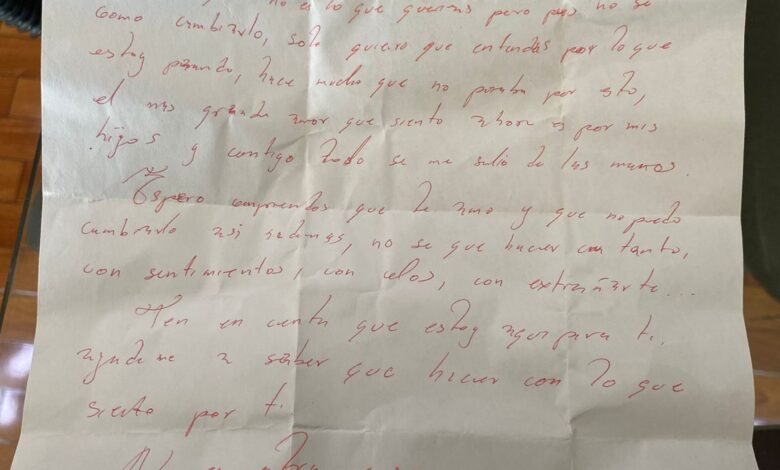 no es lo que querias pero pues no se
como cambiarlo, solo quiero que entiendas por lo que
estoy pasando, hace mucho que no pasaba por esto,
el mas grande amor que siento ahora es por mis
hijos y contigo todo se me salio de las manos.
Espero comprendas que te amo y que no puedo
cambiarlo asi nadamas, no se que hacer con tanto,
con sentimientos, con celos, con extrañarte...
Ten en cuenta que estoy aqui para ti.
ayudame a saber que hacer con lo que
siento por ti.